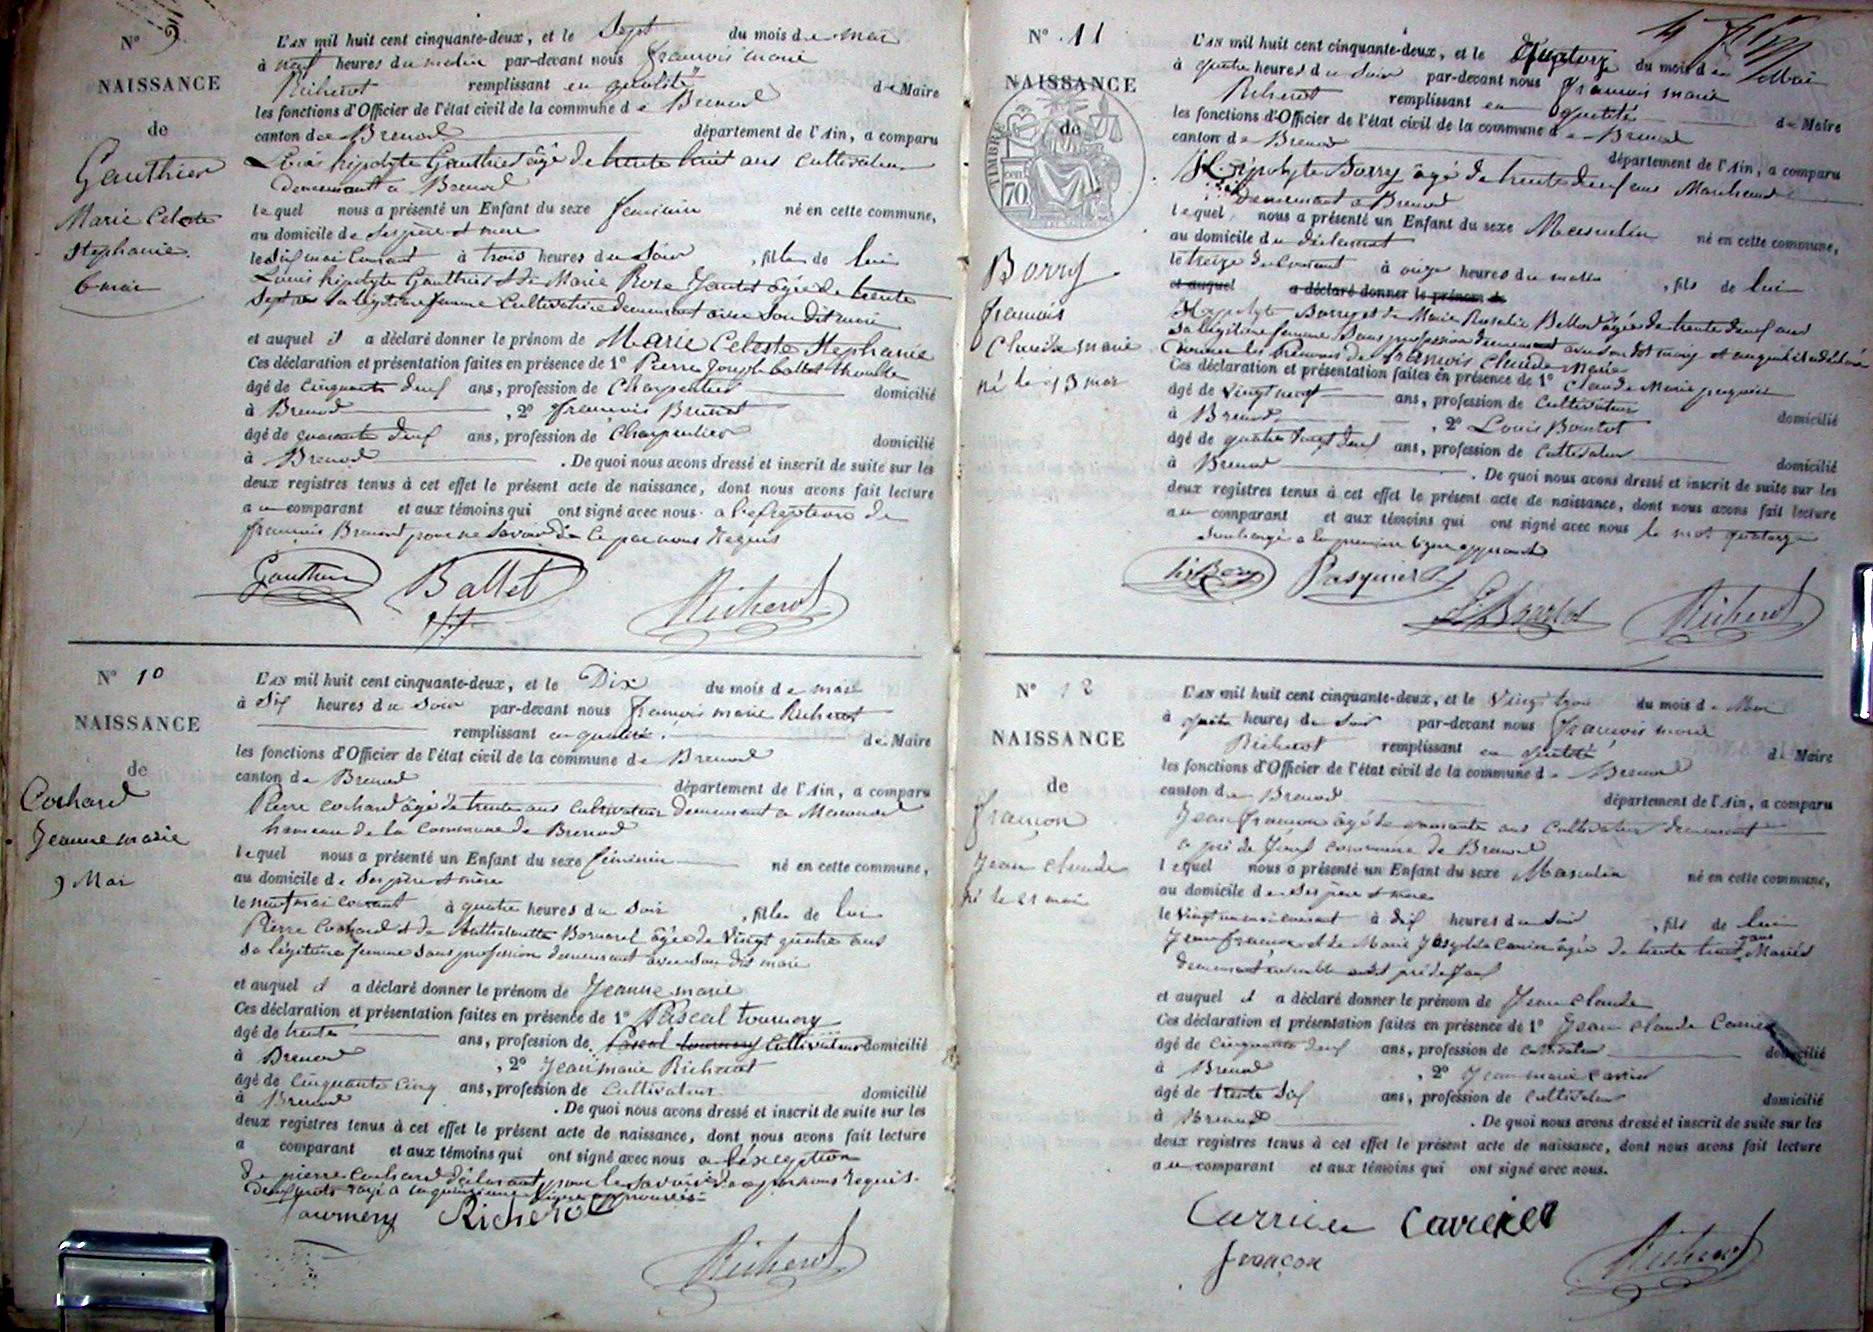 N° 9
NAISSANCE
de
Gauthier
Marie Celeste
Stephanie
6 mai
L'AN mil huit cent cinquante-deux, et le Sept du mois de mai
à neuf heures du matin par-devant nous françois marie
Richerot remplissant en qualité de Maire
les fonctions d'Officier de l'état civil de la commune de Brenod
canton de Brenod département de l'Ain, a comparu
Louis hipolyte Gauthier âgé de trente huit ans cultivateur
demeurant a Brenod
lequel nous a présenté un Enfant du sexe feminin né en cette commune,
au domicile de Ses père et mere
le Six mai Courant à trois heures du Soir , fille de lui
Louis hipolyte Gauthier et de Marie Rose Jantet âgée de trente
Sept ans Sa légitime femme Cultivatrice demeurant avec Son dit mari
et auquel il a déclaré donner le prénom de Marie Celeste Stephanie
Ces déclaration et présentation faites en présence de 1° Pierre Joseph ballet
âgé de Cinquante deux ans, profession de Charpentier domicilié
à Brenod , 2° françois Brunet
âgé de quarante deux ans, profession de Charpentier domicilié
à Brenod . De quoi nous avons dressé et inscrit de suite sur les
deux registres tenus à cet effet le présent acte de naissance, dont nous avons fait lecture
au comparant et aux témoins qui ont signé avec nous a l'exception de
françois Brunet pour ne Savoir de Ce par nous Requis
Gauthier Ballet Richerot
N° 10
NAISSANCE
de
Cochard
Jeanne marie
9 Mai
L'AN mil huit cent cinquante-deux, et le Dix du mois de mai
à Six heures du Soir par-devant nous françois marie Richerot
remplissant en qualité de Maire
les fonctions d'Officier de l'état civil de la commune de Brenod
canton de Brenod département de l'Ain, a comparu
Pierre Cochard âgé de trente ans Cultivateur demeurant a
hameau de la Commune de Brenod
lequel nous a présenté un Enfant du sexe féminin né en cette commune,
au domicile de Ses père et mère
le neuf mai courant à quatre heures du Soir , fille de lui
Pierre Cochard et de Bornarel âgée de Vingt quatre ans
Sa légitime femme Sans profession demeurant avec Son dit mari
et auquel il a déclaré donner le prénom de Jeanne marie
Ces déclaration et présentation faites en présence de 1° Pascal tournery
âgé de trente ans, profession de Pascal tournery Cultivateur domicilié
à Brenod , 2° Jean marie Richerot
âgé de Cinquante Cinq ans, profession de Cultivateur domicilié
à Brenod . De quoi nous avons dressé et inscrit de suite sur les
deux registres tenus à cet effet le présent acte de naissance, dont nous avons fait lecture
a comparant et aux témoins qui ont signé avec nous a l'exception
de pierre Cochard déclarant pour le Savoir de ce par nous requis.
deux mots rayé a la quinzieme ligne approuvés
Tournery Richerot
Richerot
N° 11
NAISSANCE
de
TIMBRE
70
Borry
françois
Claude marie
né le 13 mai
L'AN mil huit cent cinquante-deux, et le Quatorze du mois de Mai
à quatre heures du Soir par-devant nous françois marie
Richerot remplissant en qualité de Maire
les fonctions d'Officier de l'état civil de la commune de Brenod
canton de Brenod département de l'Ain, a comparu
Hipolyte Borry âgé de trente deux ans Marchand
demeurant a Brenod
lequel nous a présenté un Enfant du sexe Masculin né en cette commune,
au domicile du déclarant
le treize du Courant à onze heures du matin , fils de lui
et auquel a déclaré donner le prénom de
Hipolyte Borry et de Marie Rosalie Ballet âgée de trente deux ans
Sa légitime femme Sans profession demeurant avec Son dit mari et auquel il a déclaré
donner les Prénoms de françois Claude Marie
Ces déclaration et présentation faites en présence de 1° Claude Marie pasquier
âgé de Vingt neuf ans, profession de Cultivateur domicilié
à Brenod , 2° Louis Bourlot
âgé de quatre vingt deux ans, profession de Cultivateur domicilié
à Brenod . De quoi nous avons dressé et inscrit de suite sur les
deux registres tenus à cet effet le présent acte de naissance, dont nous avons fait lecture
au comparant et aux témoins qui ont signé avec nous le mot quatorze
Surchargé a la premiere ligne approuvé
hi Borry Pasquier
L. Bourlot Richerot
N° 12
NAISSANCE
de
françon
Jean claude
né le 21 mai
L'AN mil huit cent cinquante-deux, et le Vingt trois du mois de Mai
à quatre heures du Soir par-devant nous françois marie
Richerot remplissant en qualité de Maire
les fonctions d'Officier de l'état civil de la commune de Brenod
canton de Brenod département de l'Ain, a comparu
Jean françon âgé de quarante ans Cultivateur demeurant
a commune de Brenod
lequel nous a présenté un Enfant du sexe Masculin né en cette commune,
au domicile de Ses père et mere
le Vingt un mai courant à Six heures du Soir , fils de lui
Jean françon et de Marie Carrier âgée de trente huit ans Mariés
demeurant ensemble
et auquel il a déclaré donner le prénom de Jean Claude
Ces déclaration et présentation faites en présence de 1° Jean Claude Carrier
âgé de Cinquante deux ans, profession de Cultivateur domicilié
à Brenod , 2° Jean marie Carrier
âgé de trente Six ans, profession de Cultivateur domicilié
à Brenod . De quoi nous avons dressé et inscrit de suite sur les
deux registres tenus à cet effet le présent acte de naissance, dont nous avons fait lecture
au comparant et aux témoins qui ont signé avec nous.
Carrier Carrier
françon Richerot